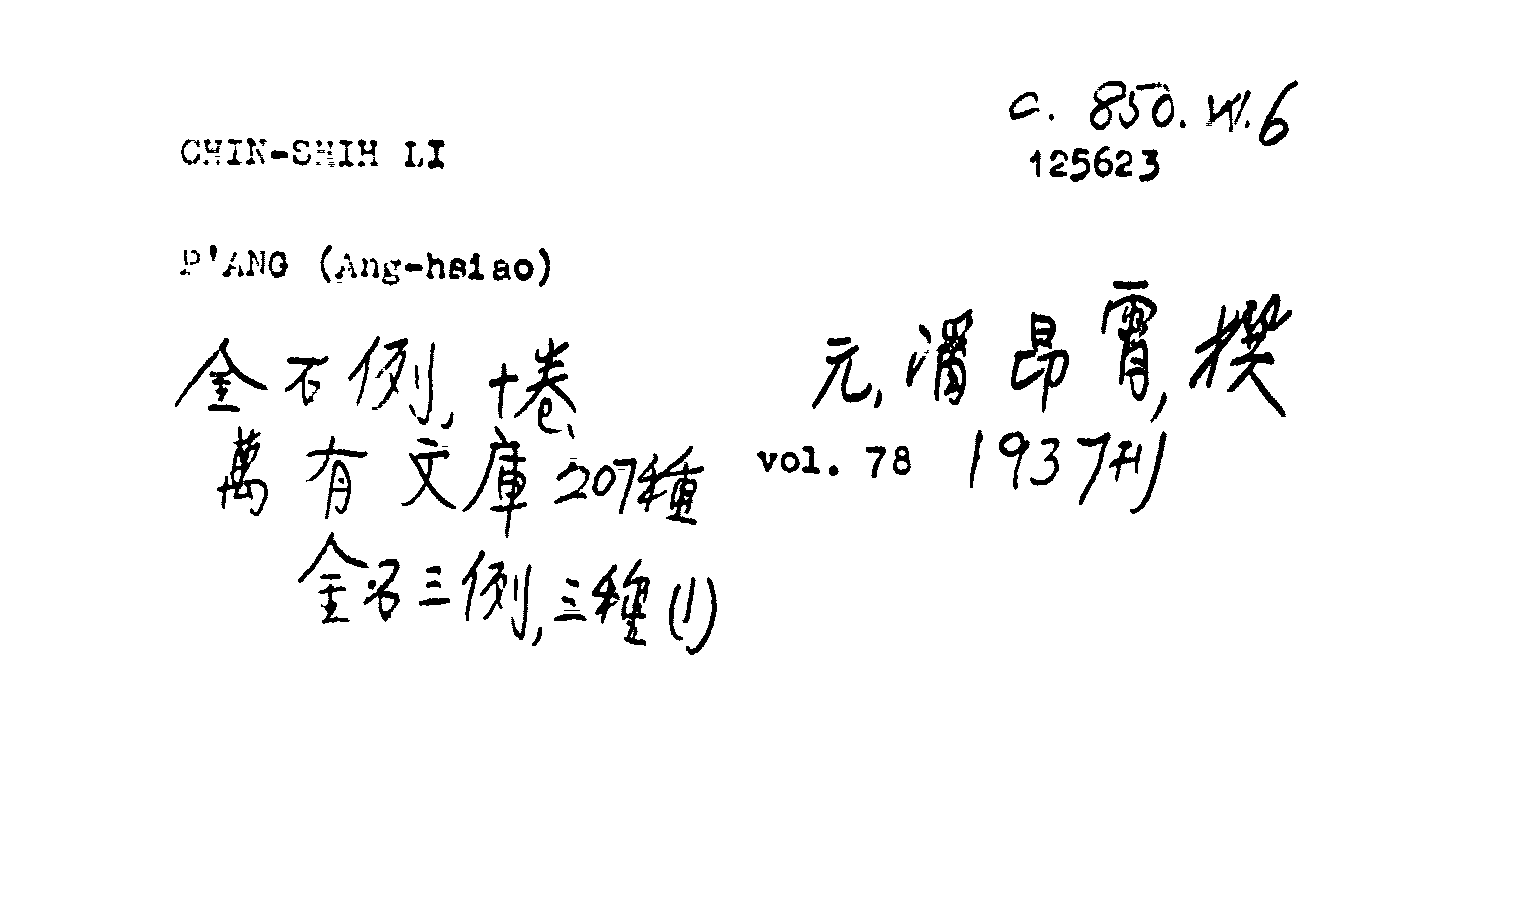 C. 850. W. 6
CHIN-SHIH LI
125623
P'ANG (Ang-hsiao)
金石例, 十卷, 元, 潘昂霄, 撰
萬有文庫207種 vol. 78 1937刊
金石三例, 三種(1)